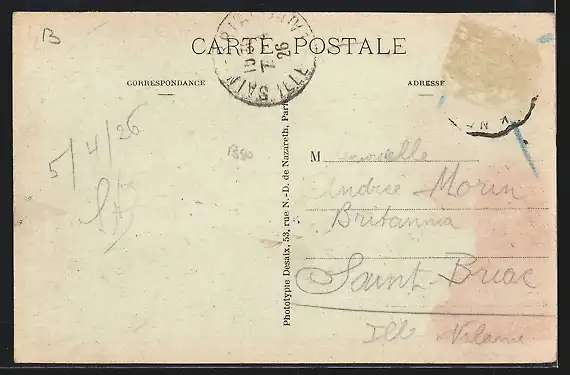 B
CARTE POSTALE
CORRESPONDANCE
ADRESSE
26
5/4/26
Phototypie Desaix, 53, rue N.-D. de Nazareth, Paris
M
Andrée Morin
Britannia
Saint Briac
Ille Vilaine